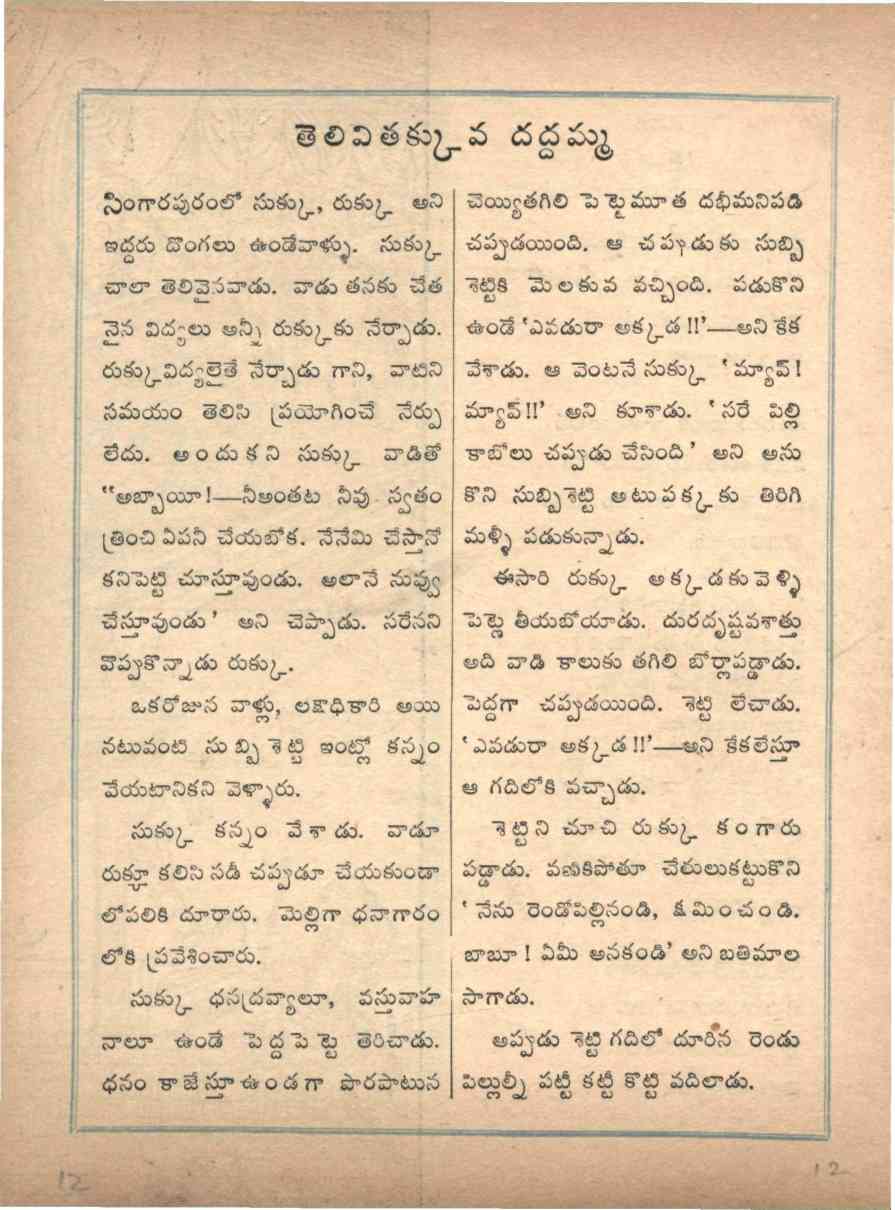 తెలివితక్కువ దద్దమ్మ
సింగారపురంలో సుక్కు, రుక్కు అని
ఇద్దరు దొంగలు ఉండేవాళ్ళు. సుక్కు
చాలా తెలివైనవాడు. వాడు తనకు చేత
నైన విద్యలు అన్నీ రుక్కుకు నేర్పాడు.
రుక్కువిద్యలైతే నేర్చాడు గాని, వాటిని
సమయం తెలిసి ప్రయోగించే నేర్పు
లేదు. అందుకని సుక్కు వాడితో
“అబ్బాయీ!—నీఅంతట నీవు స్వతం
త్రించి ఏపనీ చేయబోక. నేనేమి చేస్తానో
కనిపెట్టి చూస్తూవుండు. అలానే నువ్వు
చేస్తూవుండు' అని చెప్పాడు. సరేనని
వొప్పుకొన్నాడు రుక్కు.
ఒకరోజున వాళ్లు, లక్షాధికారి అయి
నటువంటి సుబ్బిశెట్టి ఇంట్లో కన్నం
వేయటానికని వెళ్ళారు.
సుక్కు కన్నం వేశాడు. వాడూ
రుక్కూ కలిసి సడీ చప్పుడూ చేయకుండా
లోపలికి దూరారు. మెల్లిగా ధనాగారం
లోకి ప్రవేశించారు.
సుక్కు ధనద్రవ్యాలూ, వస్తువాహ
నాలూ ఉండే పెద్దపెట్టె తెరిచాడు.
ధనం కాజేస్తూఉండగా పొరపాటున
చెయ్యితగిలి పెట్టెమూత దభీమనిపడి
చప్పుడయింది. ఆ చప్పుడుకు సుబ్బి
శెట్టికి మెలకువ వచ్చింది. పడుకొని
ఉండే ‘ఎవడురా అక్కడ!!’—అని కేక
వేశాడు. ఆ వెంటనే సుక్కు ‘మ్యావ్!
మ్యావ్!!’ అని కూశాడు. ‘సరే పిల్లి
కాబోలు చప్పుడు చేసింది’ అని అను
కొని సుబ్బిశెట్టి అటుపక్కకు తిరిగి
మళ్ళీ పడుకున్నాడు.
ఈసారి రుక్కు అక్కడకువెళ్ళి
పెట్టె తీయబోయాడు. దురదృష్టవశాత్తు
అది వాడి కాలుకు తగిలి బోర్లాపడ్డాడు.
పెద్దగా చప్పుడయింది. శెట్టి లేచాడు.
‘ఎవడురా అక్కడ!!’—అని కేకలేస్తూ
ఆ గదిలోకి వచ్చాడు.
శెట్టిని చూచి రుక్కు కంగారు
పడ్డాడు. వణికిపోతూ చేతులుకట్టుకొని
‘నేను రెండోపిల్లినండి, క్షమించండి.
బాబూ! ఏమీ అనకండి’ అని బతిమాల
సాగాడు.
అప్పుడు శెట్టి గదిలో దూరిన రెండు
పిల్లుల్నీ పట్టీ కట్టీ కొట్టి వదిలాడు.
12
12